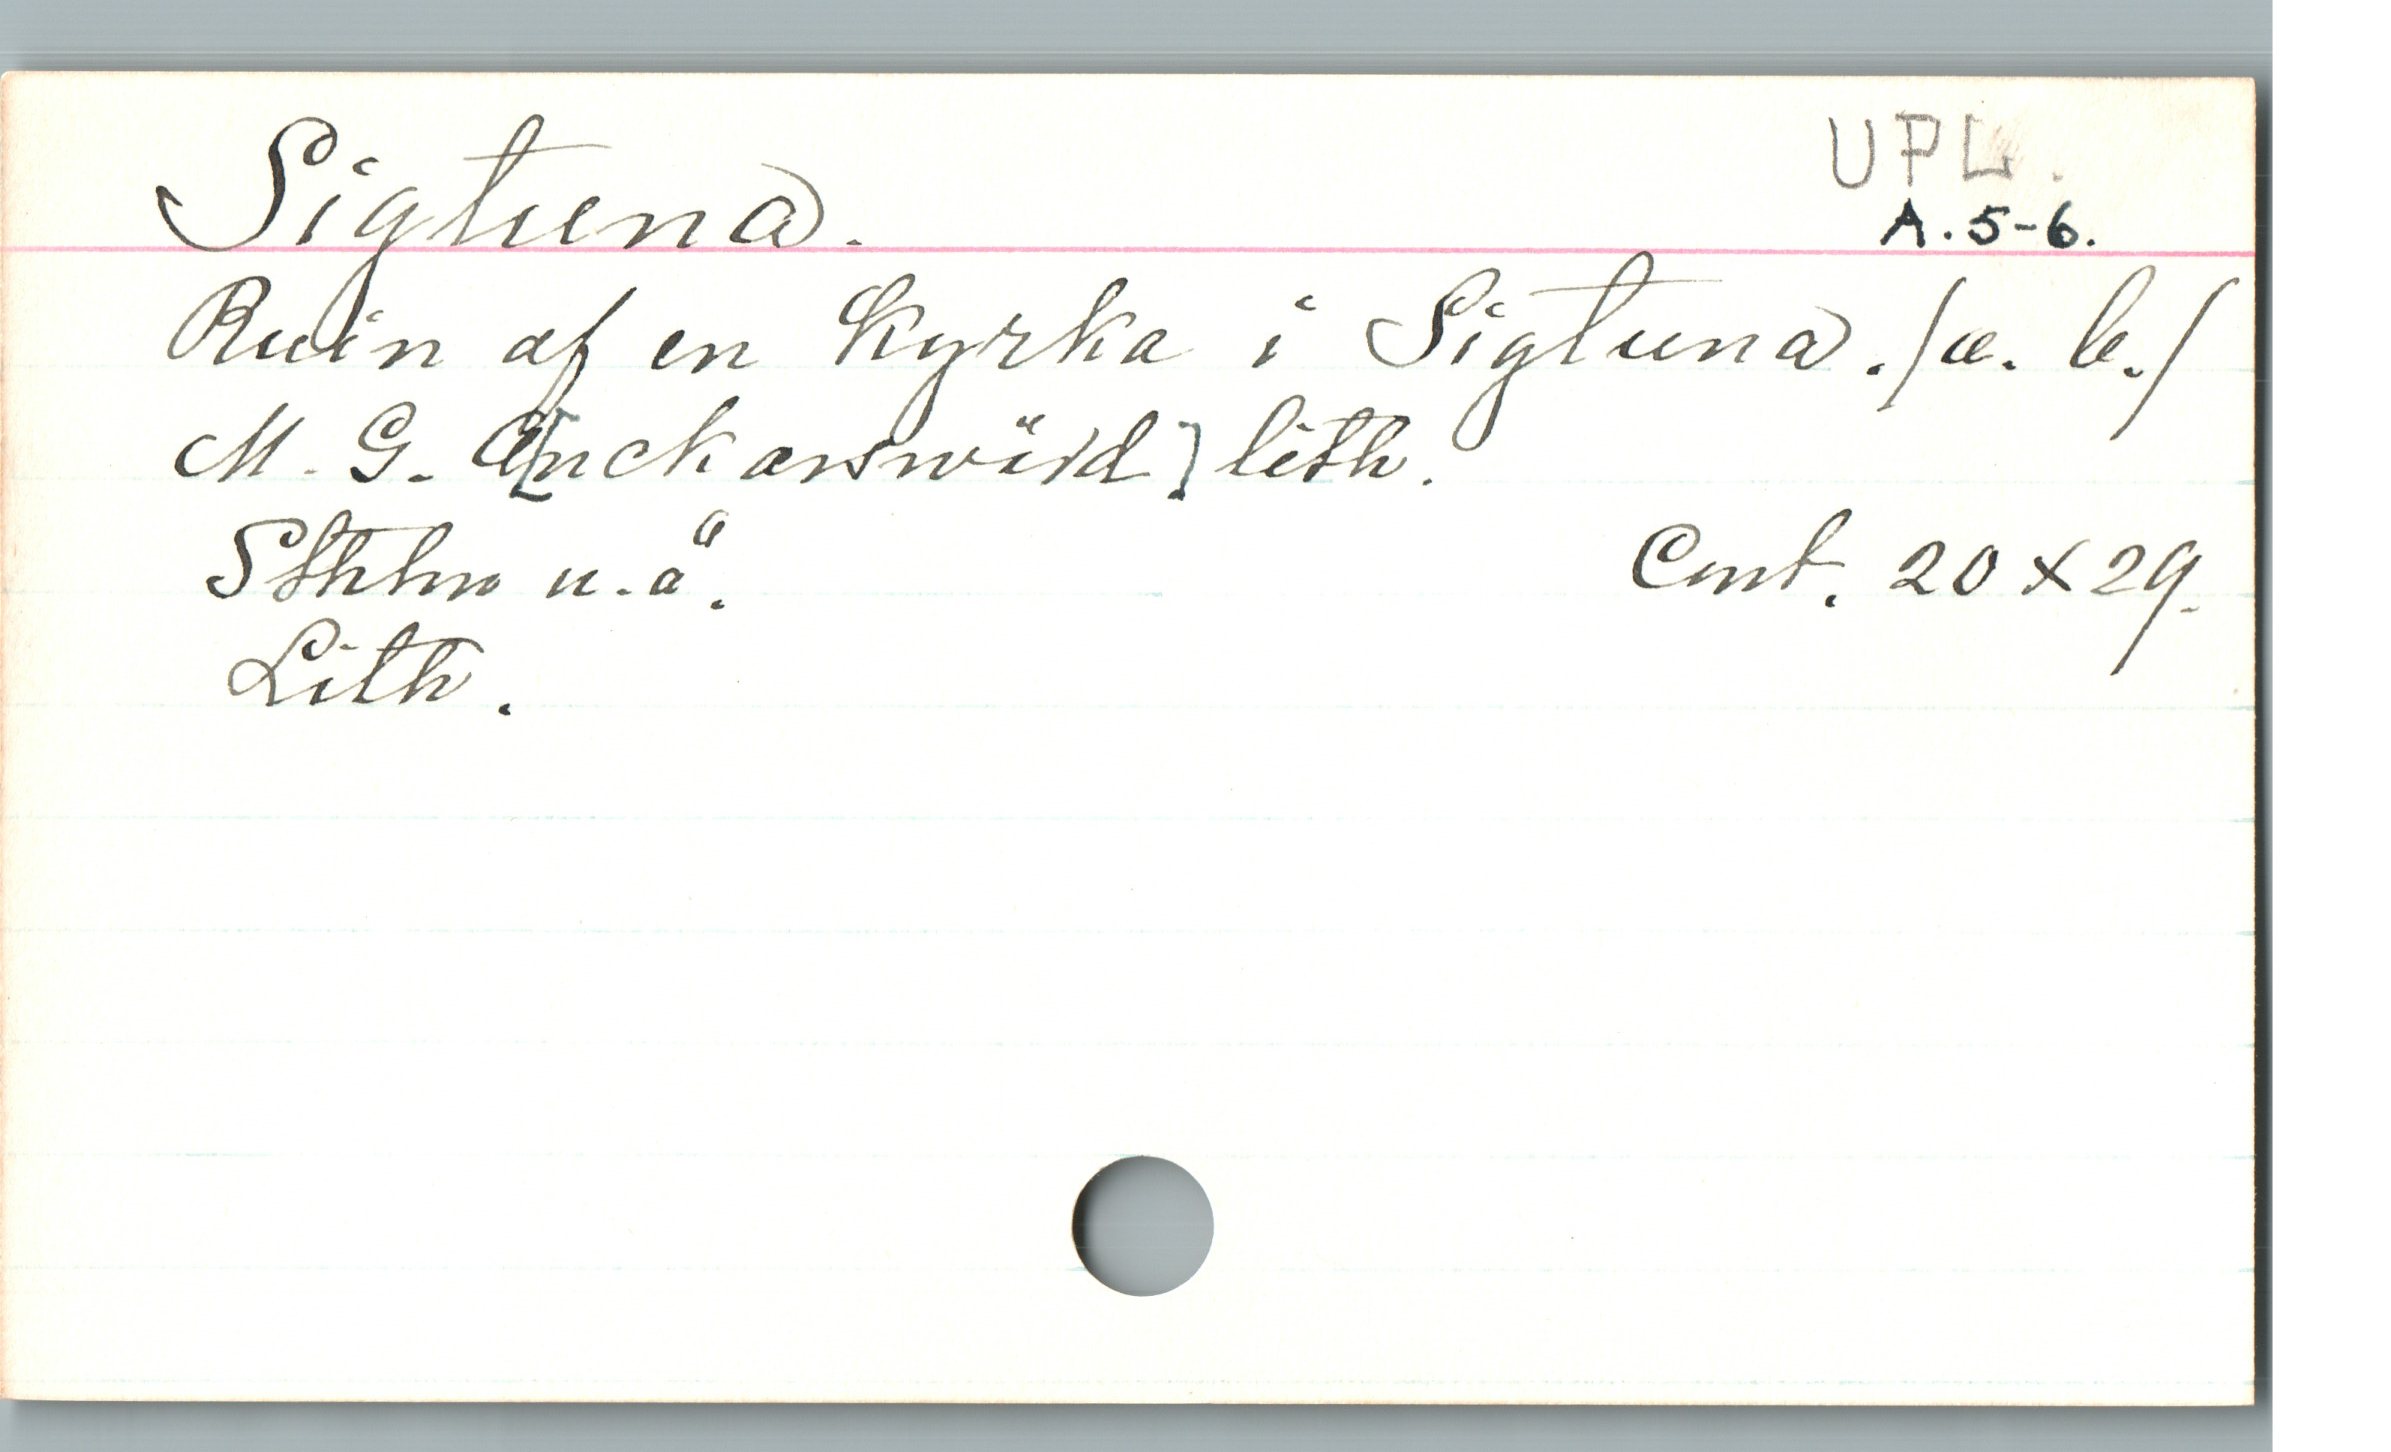 Sigtuna.
UPL.
A. 5-6.
Ruin af en kyrka i Sigtuna. /a. b./
M. G. A[nckarswärd] lith.
Sthlm u. å.
Cont. 20 x 29.
Lith.